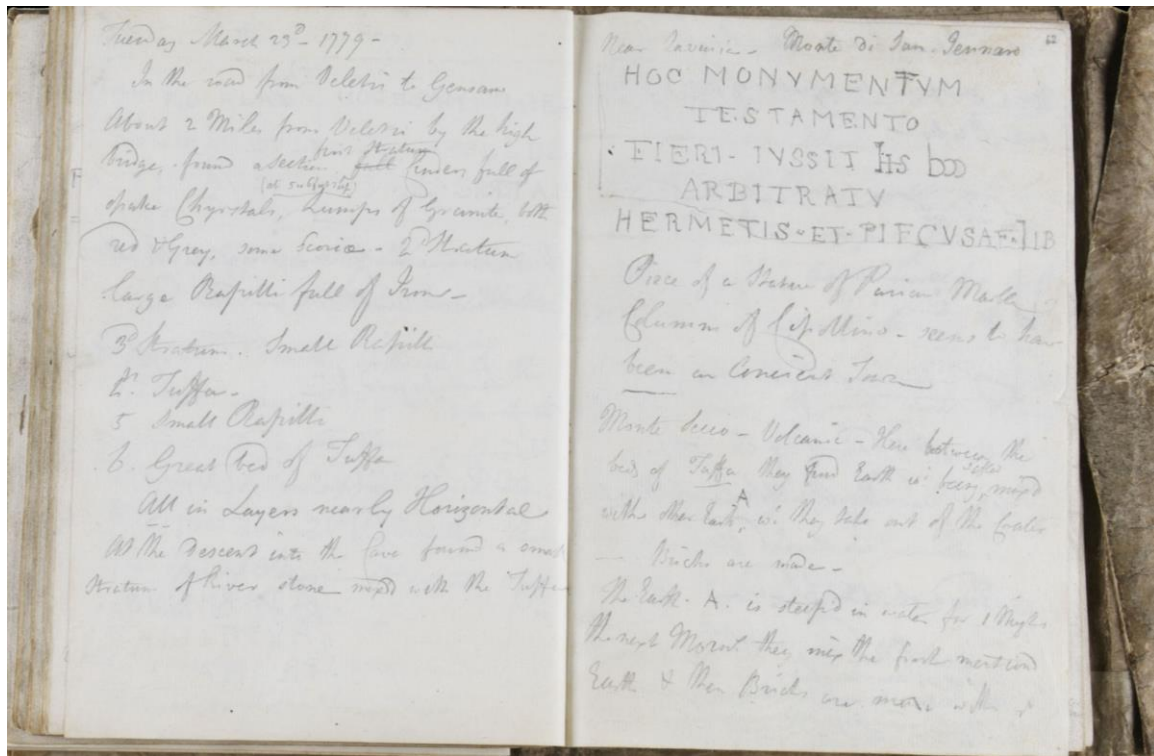 Tuesday March 23d - 1779 -
In the road from Veletri to Gensano
About 2 Miles from Veletri by the high
first Stratum
bridge, found a section Cinders full of
opake Chrystals, Lumps of Granite, both
red & Grey, some Scoriæ - 2d Stratum
large Rapilli full of Iron -
3d Stratum. Small Rapilli
4. Tuffa -
5 Small Rapilli
6. Great bed of Tuffa
All in Layers nearly Horizontal
At the descent into the Cave found a small
Stratum of River stone mixed with the Tuffa
62
Near Lavinia - Monte di San Gennaro
HOC MONVMENTVM
TESTAMENTO
FIERI - IVSSIT HS
ARBITRATV
HERMETIS · ET · LIB
Piece of a Statue of Parian Marble
Columns of Cipollino - seems to have
been an Ancient Town
Monte Secco - Volcanic - Here between the
beds of Tuffa they find Earth wh. being mixed
A
with other Earth, wh. they take out of the Crater
— Bricks are made -
The Earth - A. is steep'd in water for 1 Night
the next Morng they mix the first mention'd
Earth & then Bricks are made with it